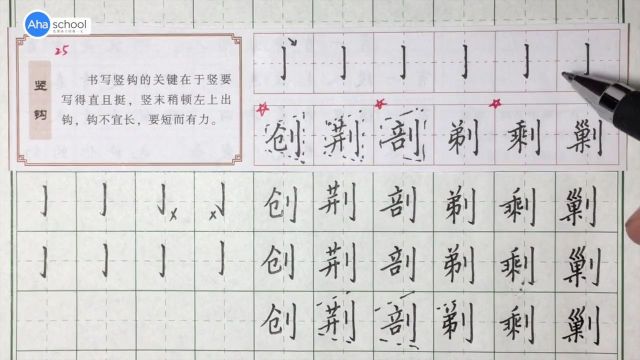 Aha school
25
竖钩
书写竖钩的关键在于竖要
写得直且挺，竖末稍顿左上出
钩，钩不宜长，要短而有力。
亅 亅 亅 亅 亅 亅
创 荆 剖 剃 剩 剿
亅 亅 亅 x x 亅 创 荆 剖 剃 剩 剿
亅 亅 亅 亅 创 荆 剖 剃 剩 剿
创 荆 剖 剃 剩 剿